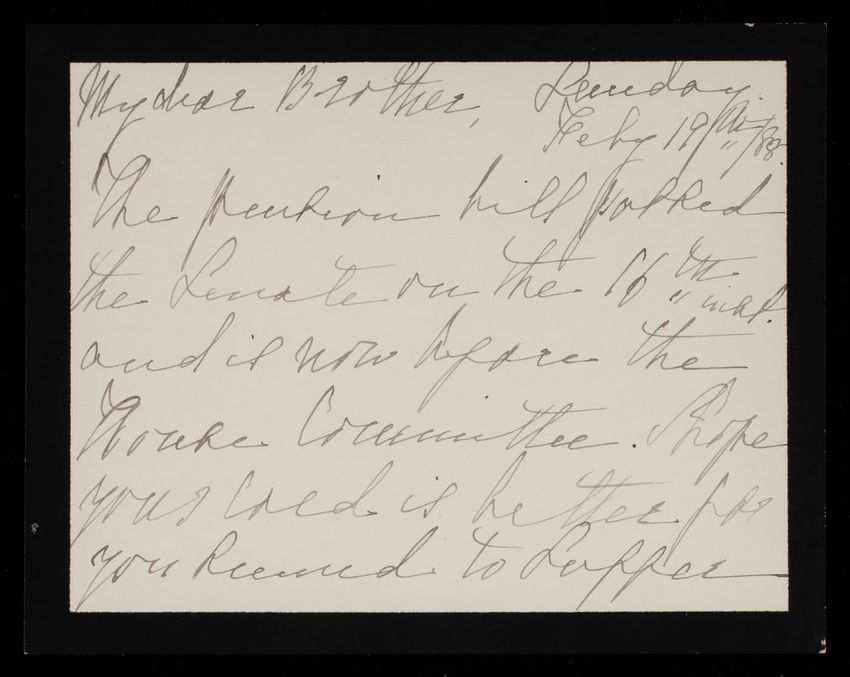 My dear Brother, Sunday
Feby 19th/88.
The pension bill passed
the Senate on the 16th inst.
and is now before the
House Committee. I hope
your cold is better for
you seemed to suffer